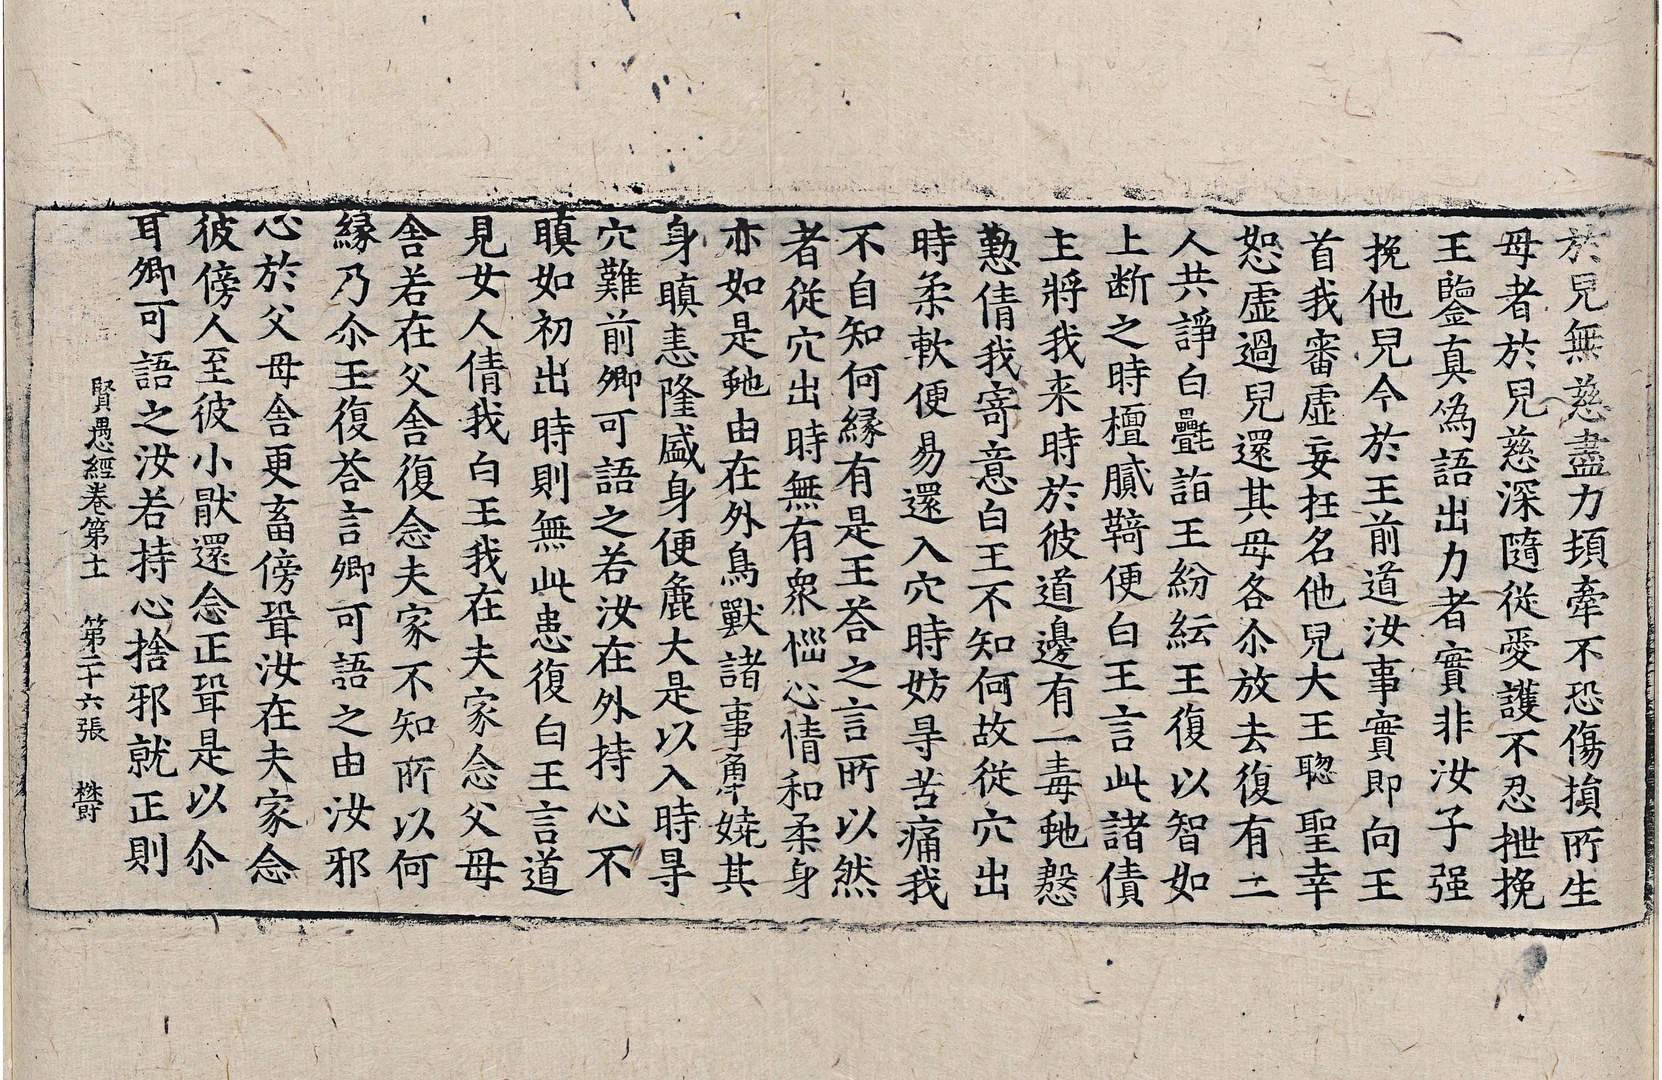 於兒無慈盡力頓牽不恐傷損所生
母者於兒慈深隨從愛護不忍抴挽
王鑒真偽語出力者實非汝子强
挽他兒今於王前道汝事實即向王
首我審虛妄抂名他兒大王聦聖幸
恕虛過兒還其母各尒放去復有二
人共諍白㲲詣王紛紜王復以智如
上断之時檀膩䩭便白王言此諸債
主將我来時於彼道邊有一毒虵慇
懃倩我寄意白王不知何故從穴出
時柔軟便易還入穴時妨㝵苦痛我
不自知何縁有是王荅之言所以然
者從穴出時無有衆惱心情和柔身
亦如是虵由在外鳥獸諸事觸嬈其
身瞋恚隆盛身便麁大是以入時㝵
穴難前卿可語之若汝在外持心不
瞋如初出時則無此患復白王言道
見女人倩我白王我在夫家念父母
舍若在父舍復念夫家不知所以何
縁乃尒王復荅言卿可語之由汝邪
心於父母舍更畜傍聟汝在夫家念
彼傍人至彼小猒還念正聟是以尒
耳卿可語之汝若持心捨邪就正則
賢愚經卷第十一 第二十六張 欝